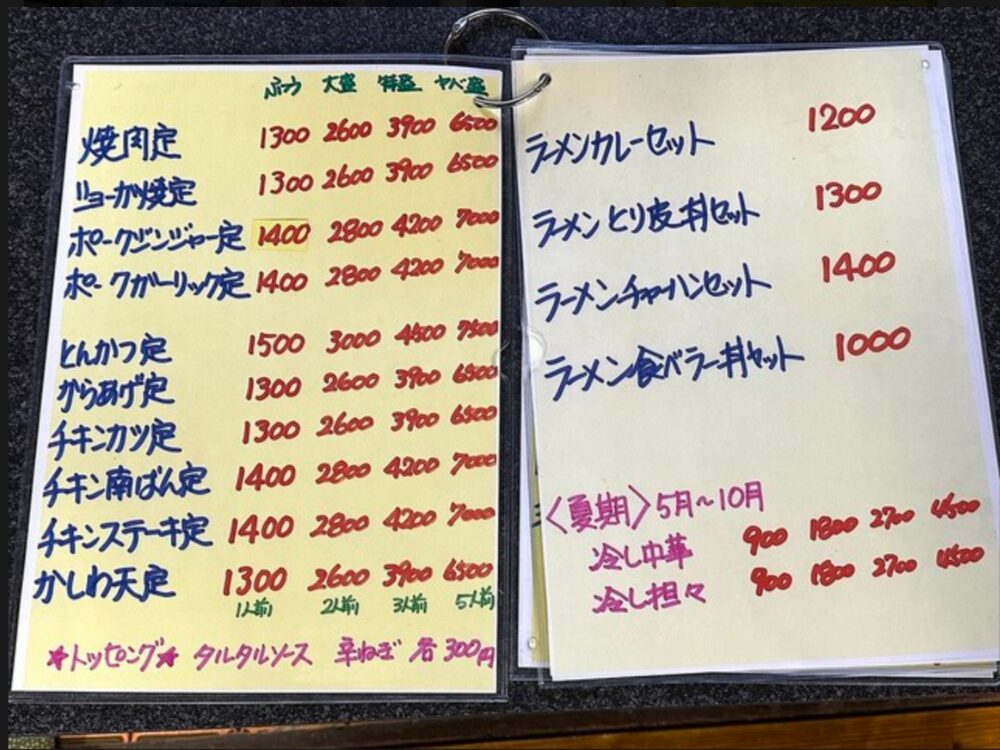 ふつう 大盛 特盛 ヤベ盛
焼肉定 1300 2600 3900 6500
ショーガ焼定 1300 2600 3900 6500
ポークジンジャー定 1400 2800 4200 7000
ポークガーリック定 1400 2800 4200 7000
とんかつ定 1500 3000 4500 7500
からあげ定 1300 2600 3900 6500
チキンカツ定 1300 2600 3900 6500
チキン南ばん定 1400 2800 4200 7000
チキンステーキ定 1400 2800 4200 7000
かしわ天定 1300 2600 3900 6500
1人前 2人前 3人前 5人前
★トッピング★ タルタルソース 辛ねぎ 各300円
ラーメンカレーセット 1200
ラーメンとり皮丼セット 1300
ラーメンチャーハンセット 1400
ラーメン食べラー丼セット 1000
〈夏期〉5月～10月
冷し中華 900 1800 2700 4500
冷し担々 900 1800 2700 4500